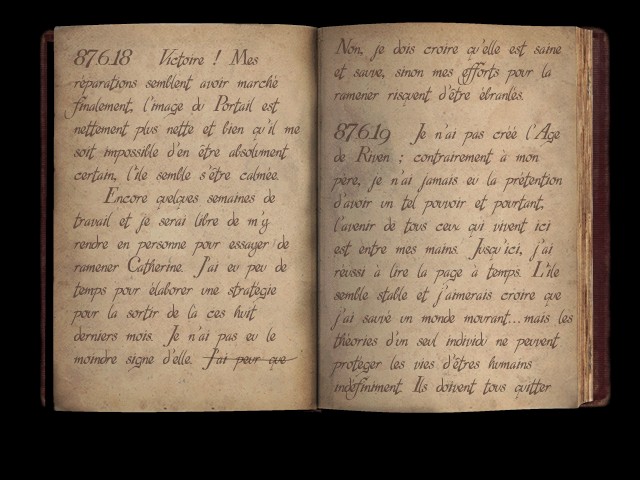 87.6.18 Victoire ! Mes
réparations semblent avoir marché
finalement, l'image du Portail est
nettement plus nette et bien qu'il me
soit impossible d'en être absolument
certain, l'île semble s'être calmée.
Encore quelques semaines de
travail et je serai libre de m'y
rendre en personne pour essayer de
ramener Catherine. J'ai eu peu de
temps pour élaborer une stratégie
pour la sortir de là ces huit
derniers mois. Je n'ai pas eu le
moindre signe d'elle. J'ai peur que
Non, je dois croire qu'elle est saine
et sauve, sinon mes efforts pour la
ramener risquent d'être ébranlés.
87.6.19 Je n'ai pas créé l'Age
de Riven ; contrairement à mon
père, je n'ai jamais eu la prétention
d'avoir un tel pouvoir et pourtant,
l'avenir de tous ceux qui vivent ici
est entre mes mains. Jusqu'ici, j'ai
réussi à lire la page à temps. L'île
semble stable et j'aimerais croire que
j'ai sauvé un monde mourant... mais les
théories d'un seul individu ne peuvent
protéger les vies d'êtres humains
indéfiniment. Ils doivent tous quitter